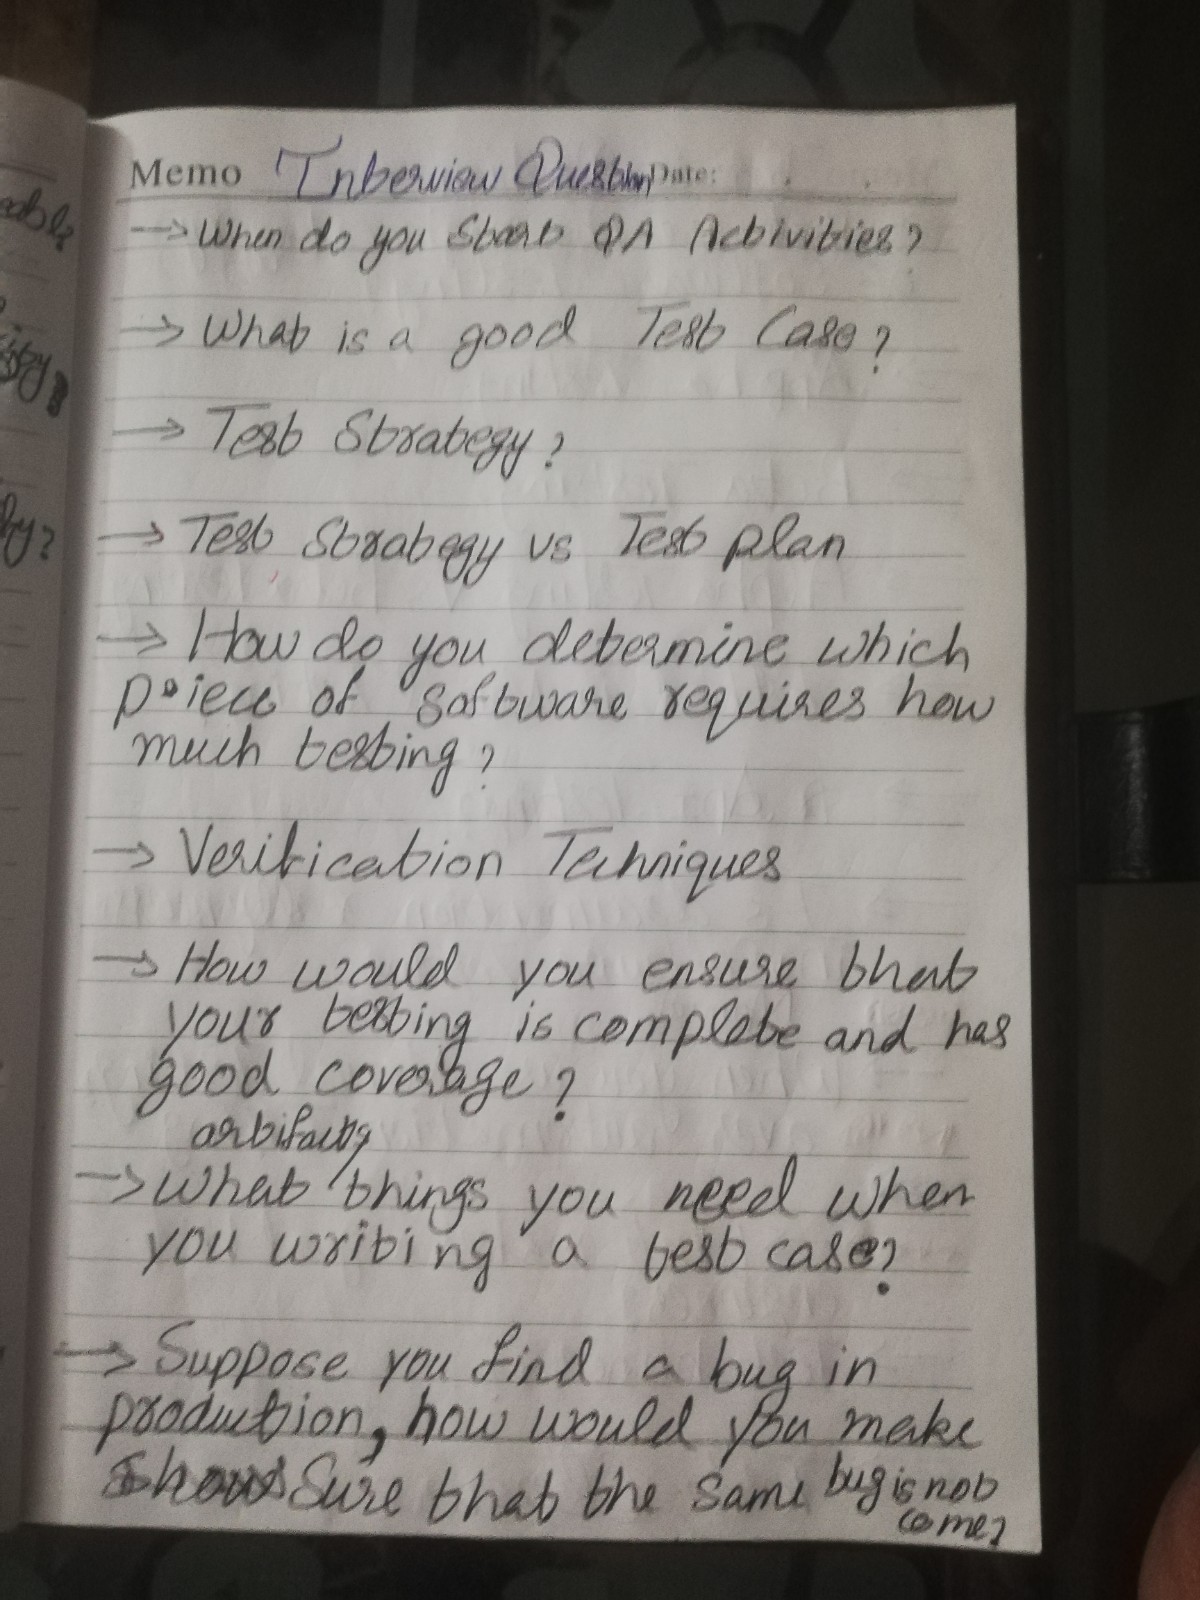 Memo Interview Question Date:
→ When do you Start QA Activities?
→ What is a good Test Case?
→ Test Strategy?
→ Test Strategy vs Test plan
→ How do you determine which
piece of software requires how
much testing?
→ Verification Techniques
→ How would you ensure that
your testing is complete and has
good coverage?
artifacts
→ What things you need when
you writing a test case?
→ Suppose you find a bug in
production, how would you make
Sure that the same bug is not
come?